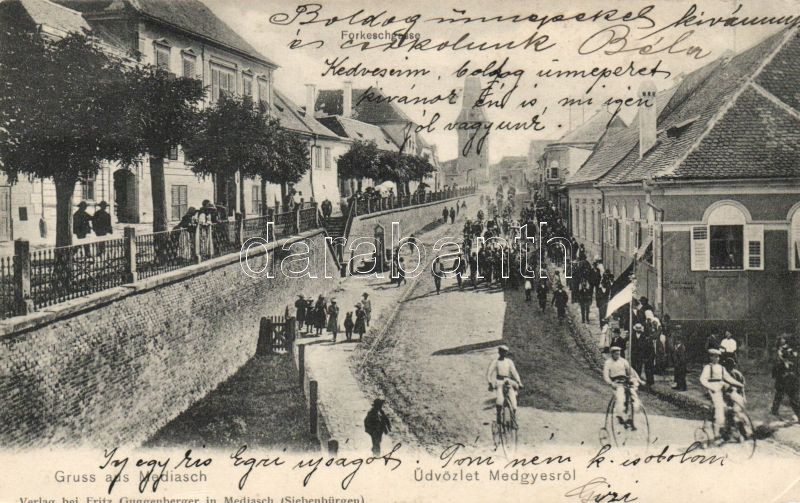 Boldog ünnepeket kivánunk
és csókolunk Béla
Forkeschgasse
Kedveseim, boldog ünneperet
kivánok Én is, mi igen
jól vagyunk.
darabanth
Gruss aus Mediasch
Üdvözlet Medgyesről
Irj egy kis Egri ujságot. Tom nem
Gizi
Verlag bei Fritz Guggenberger in Mediasch (Siebenbürgen)